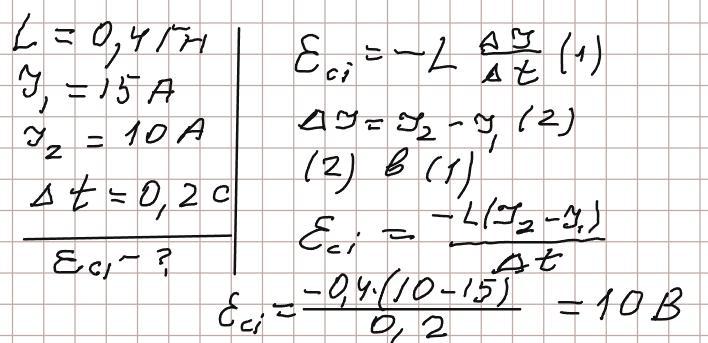 L = 0,4 Гн
I₁ = 15 А
I₂ = 10 А
Δt = 0,2 с
ℰci - ?
ℰci = -L ΔI/Δt (1)
ΔI = I₂ - I₁ (2)
(2) в (1)
ℰci = -L(I₂ - I₁)/Δt
ℰci = -0,4·(10-15)/0,2 = 10 В